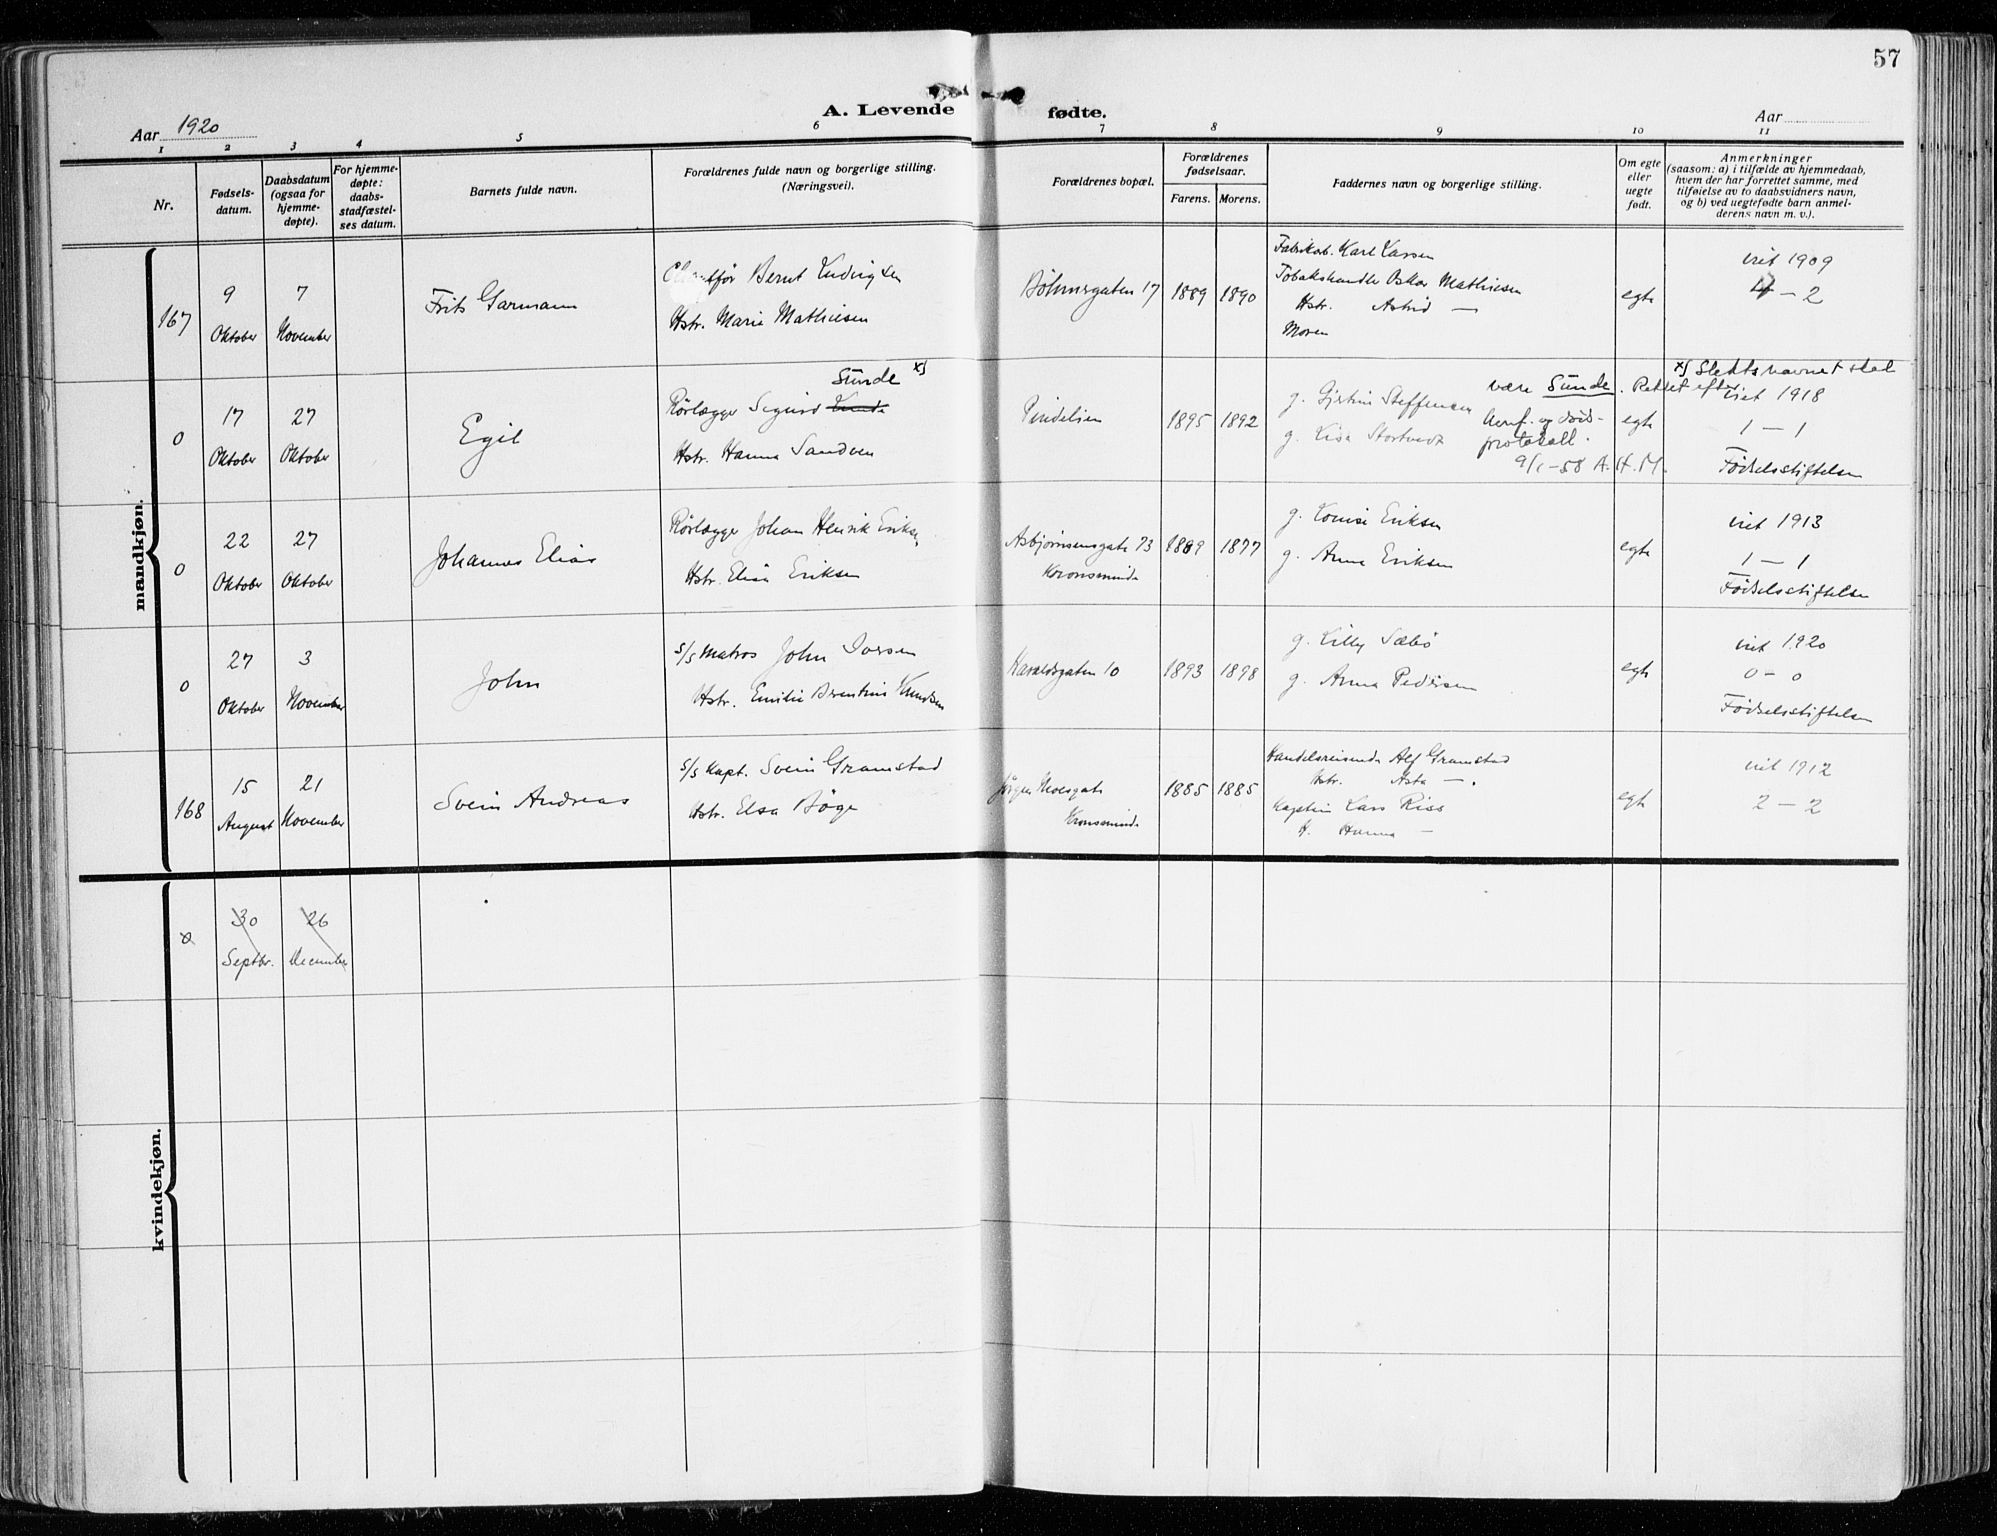 57
A. Levende fødte.
Aar 1920
Aar
1 2 3 4 5 6 7 8 9 10 11
Nr.
Fødsels-
datum.
Daabsdatum
(ogsaa for
hjemme-
døpte).
For hjemme-
døpte:
daabs-
stadfæstel-
ses datum.
Barnets fulde navn.
Forældrenes fulde navn og borgerlige stilling.
(Næringsvei).
Forældrenes bopæl.
Forældrenes
fødselsaar.
Farens. Morens.
Faddernes navn og borgerlige stilling.
Om egte
eller
uegte
født.
Anmerkninger
(saasom: a) i tilfælde av hjemmedaab,
hvem der har forrettet samme, med
tilføielse av to daabsvidners navn,
og b) ved uegtefødte barn anmel-
derens navn m. v.).
mandkjøn.
167
9
Oktober
7
November
Frits Garmann
Bernt Ludvigsen
Hstr. Marie Mathiesen
Bøhmergaten 17
1889
1890
Fabrikab. Karl Larsen
Tobakshandler Oskar Mathiesen
Hstr. Astrid —
Moren
egte
viet 1909
4 – 2
0
17
Oktober
27
Oktober
Egil
Sünde x)
Rørlægger Sigurd Kunde
Hstr. Hanna Sandven
1895
1892
g. Steffensen
g. Lisa Stortvedt
x) Slektsnavnet skal
være Sünde. Rettet efter
konf. og
protokoll.
9/1-58 A.H.M.
egte
viet 1918
1 – 1
Fødselsstiftelsen
0
22
Oktober
27
Oktober
Johannes Elias
Rørlægger Johan Henrik Eriksen
Hstr. Elisa Eriksen
Asbjørnsensgate 73
Kronsminde
1889
1877
g. Louise Eriksen
g. Anna Eriksen
egte
viet 1913
1 – 1
Fødselsstiftelsen
0
27
Oktober
3
November
John
s/s Matros John Iversen
Hstr. Emilie Berentine Knudsen
Haraldsgaten 10
1893
1898
g. Lilly Sæbø
g. Anna Pedersen
egte
viet 1920
0 – 0
Fødselsstiftelsen
168
15
August
21
November
Svein Andreas
s/s Kapt. Svein Gramstad
Hstr. Elsa Bøge
Jørgen Moesgate
Kronsminde
1885
1885
Handelsreisende Alf Gramstad
Hstr. Asta —.
Kaptein Lars Riss
H. Hanna —
egte
viet 1912
2 – 2
kvindekjøn.
0
30
Septbr.
26
December